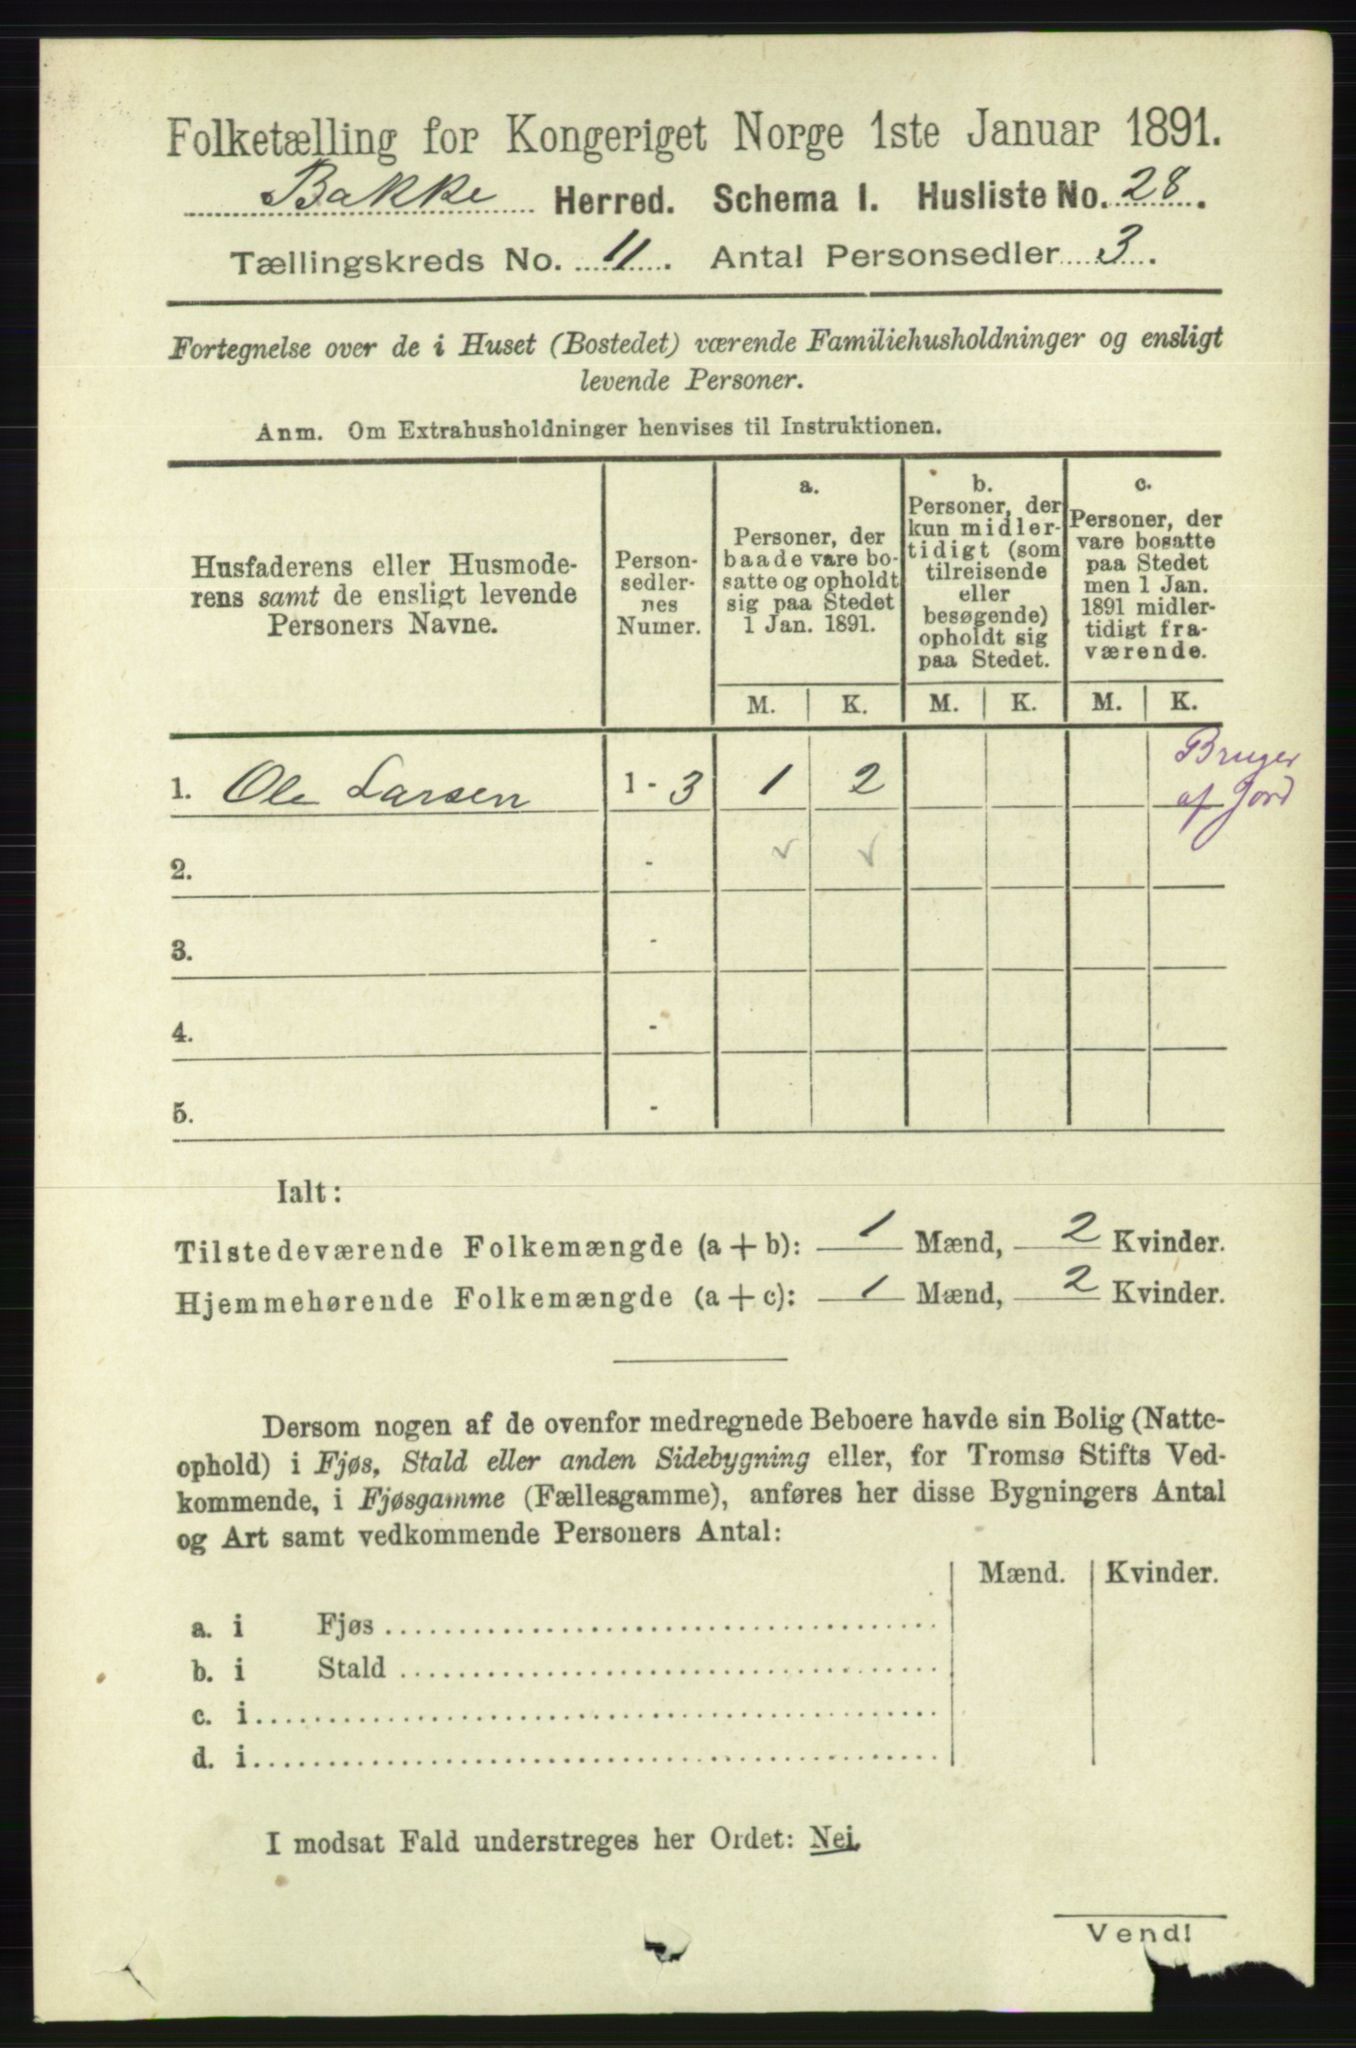 Folketælling for Kongeriget Norge 1ste Januar 1891.
Bakke Herred. Schema 1. Husliste No. 28.
Tællingskreds No. 11. Antal Personsedler 3.
Fortegnelse over de i Huset (Bostedet) værende Familiehusholdninger og ensligt
levende Personer.
Anm. Om Extrahusholdninger henvises til Instruktionen.
Husfaderens eller Husmode-
rens samt de ensligt levende
Personers Navne.
Person-
sedler-
nes
Numer.
a.
Personer, der
baade vare bo-
satte og opholdt
sig paa Stedet
1 Jan. 1891.
b.
Personer, der
kun midler-
tidigt (som
tilreisende
eller
besøgende)
opholdt sig
paa Stedet.
c.
Personer, der
vare bosatte
paa Stedet
men 1 Jan.
1891 midler-
tidigt fra-
værende.
M. K. M. K. M. K.
1. Ole Larsen 1 - 3 1 2
Bruger
af Jord
2. - ✓ ✓
3. -
4. -
5. -
Ialt:
Tilstedeværende Folkemængde (a + b): 1 Mænd, 2 Kvinder.
Hjemmehørende Folkemængde (a + c): 1 Mænd, 2 Kvinder.
Dersom nogen af de ovenfor medregnede Beboere havde sin Bolig (Natte-
ophold) i Fjøs, Stald eller anden Sidebygning eller, for Tromsø Stifts Ved-
kommende, i Fjøsgamme (Fællesgamme), anføres her disse Bygningers Antal
og Art samt vedkommende Personers Antal:
Mænd. Kvinder.
a. i Fjøs
b. i Stald
c. i
d. i
I modsat Fald understreges her Ordet: Nei.
Vend!